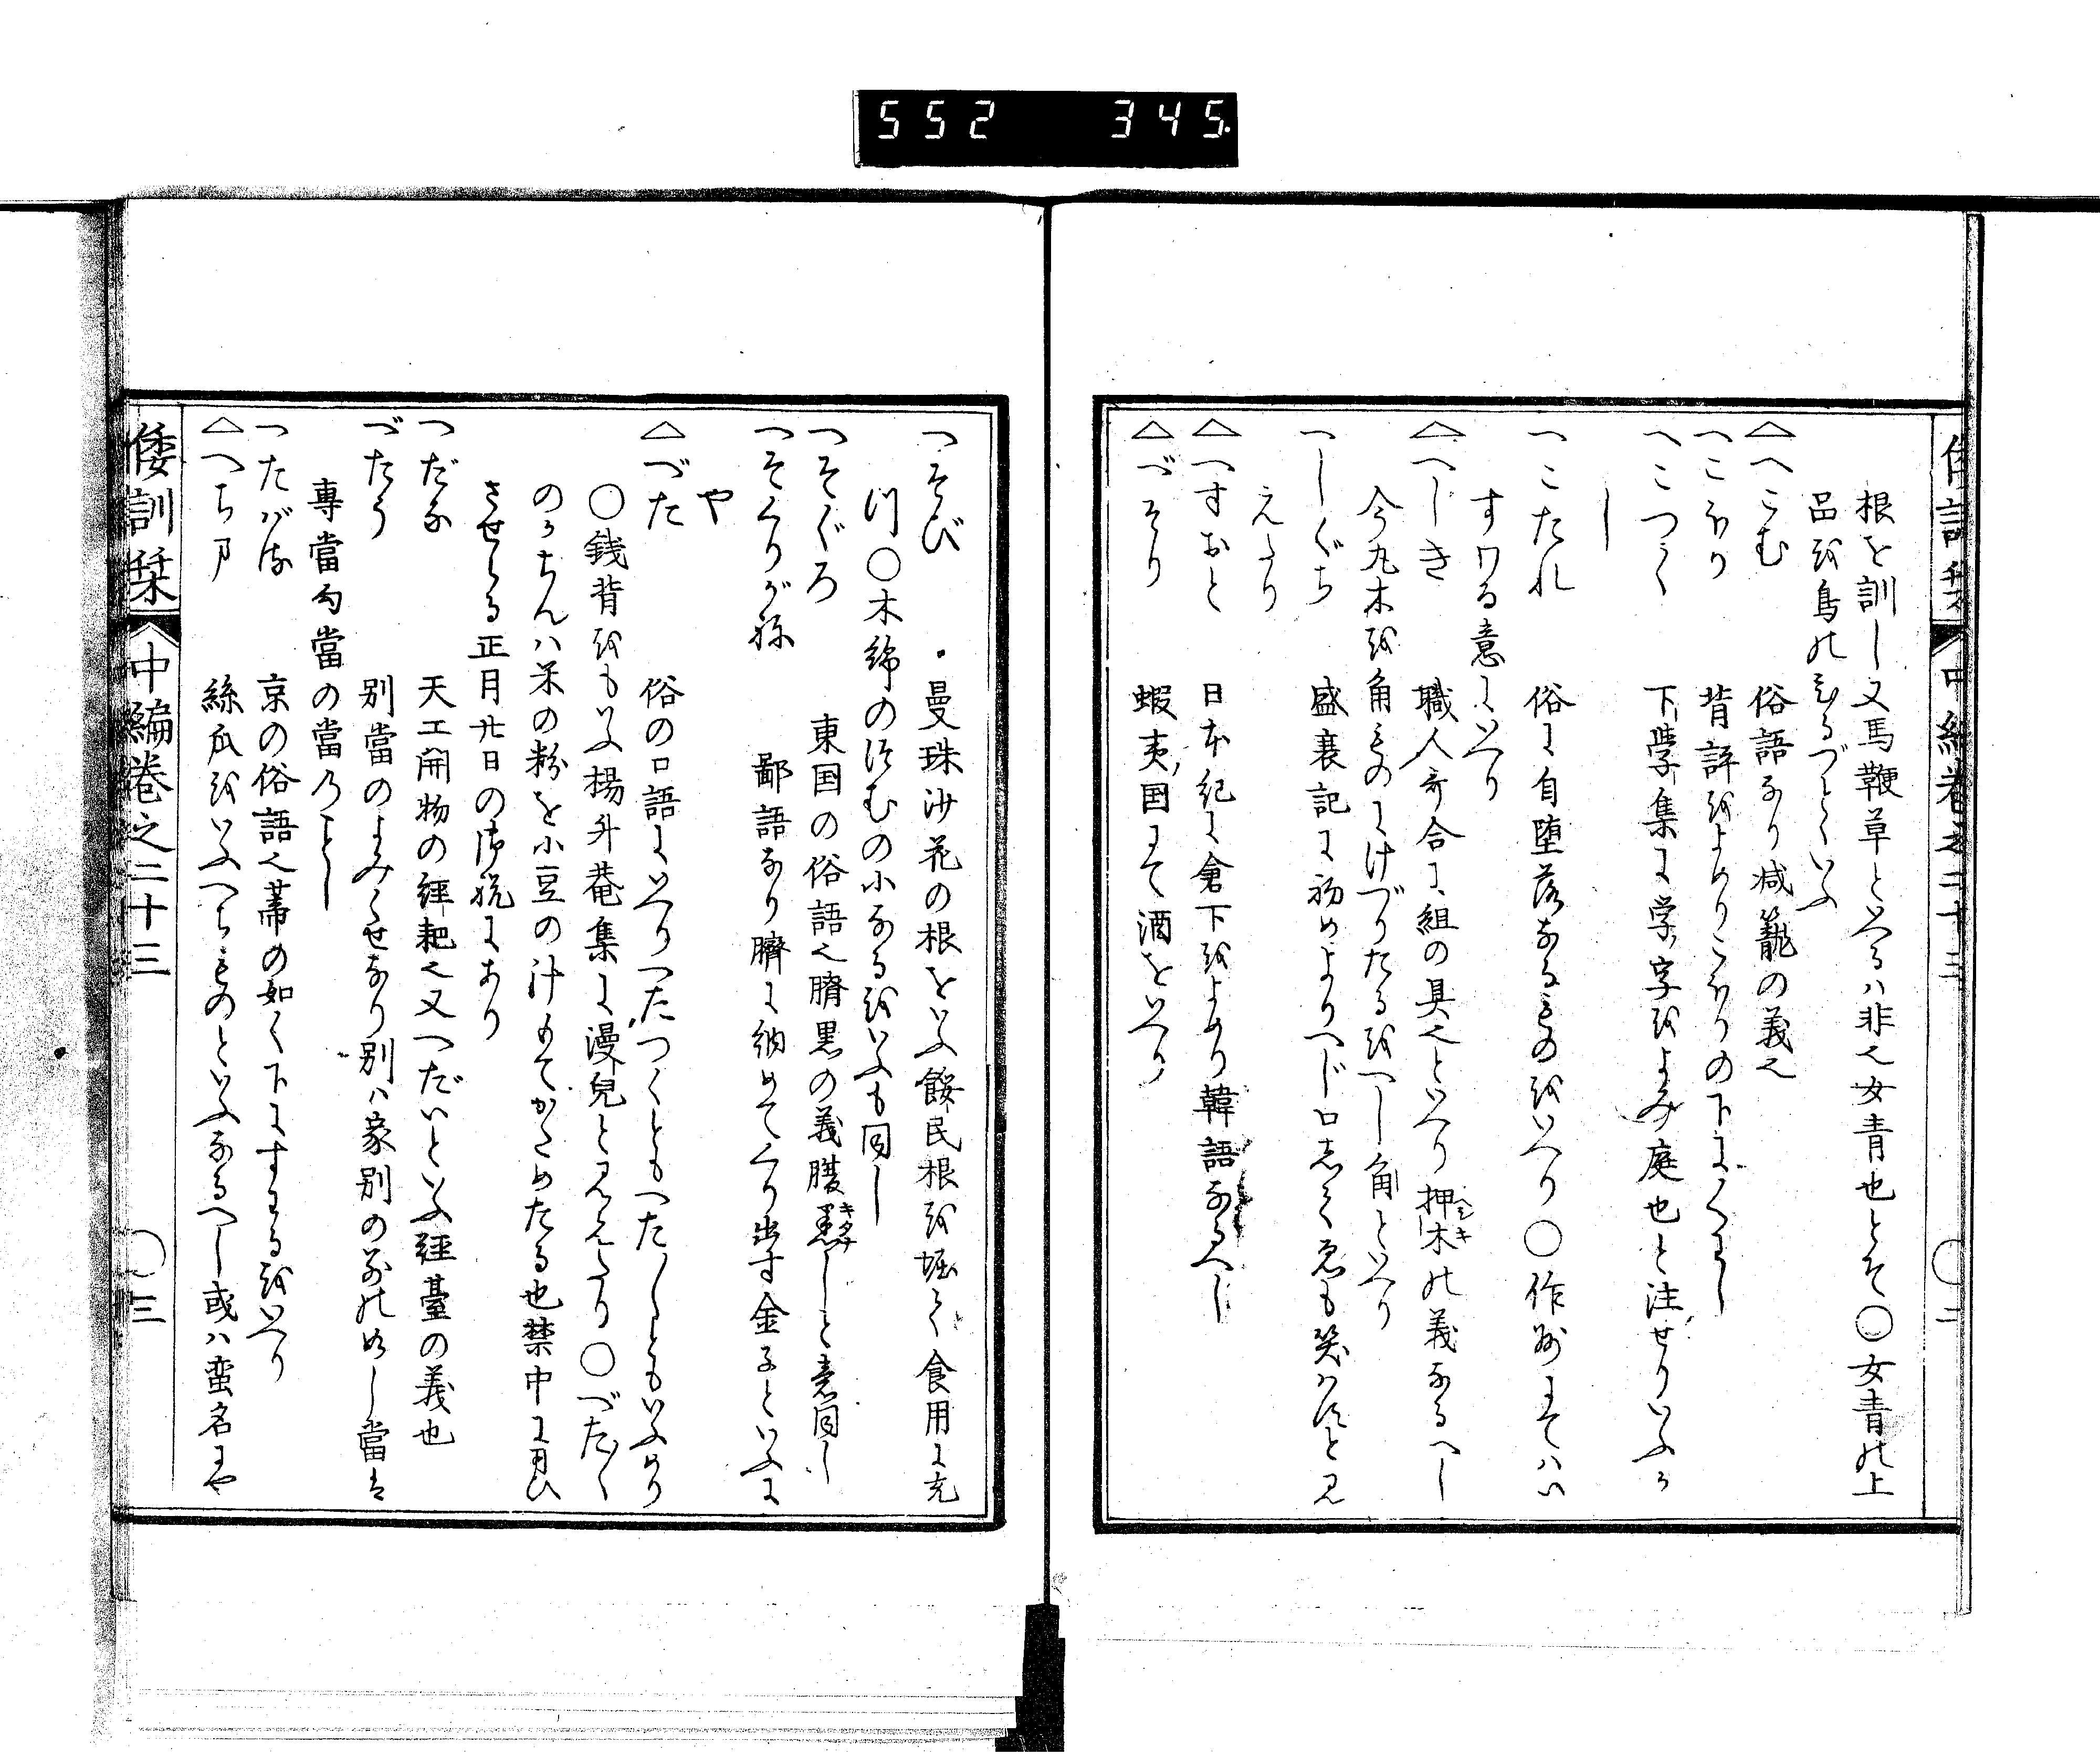 552 345
根を訓し又馬鞭草といへるハ非也女青也とそ〇女青の上
品を鳥のむるづらといふ
△へこむ 俗語なり減籠の義也
へこほり 背評をよめりこほりの下にくはし
へこつく 下学集に学字をよみ庭也と注せりいふか
し
へこたれ 俗に自堕落なるものをいへり〇作州にてハい
すわる意にいへり
△へしき 職人哥合に組の具也といへり押木の義なるへし
今丸木を角ものにけづりたるをへし角といへり
へしぐち 盛衰記に初めよりへじ口しておも笑ハすと見
えたり
△へすおと 日本紀に倉下をよめり韓語なるへし
△べそり 蝦夷国にて酒をいへり
倭訓栞 中編巻之二十三 〇二
へそび 曼珠沙花の根をいふ餒民根を堀て食用に充
つ〇木綿のつむの小なるをいふも同し
へそぐろ 東国の俗語也臍黒の義腹黒しと意同し
キタナ
へそくりがね 鄙語なり臍に納めてくり出す金子といふに
や
△べた 俗の口語にいへりへたつくともへたへたともいふめり
〇銭背をもいふ楊升菴集に漫兒と見えたり〇べたべた
のかちんハ米の粉を小豆の汁もてかためたる也禁中に用ひ
させらる正月廿日の御祝にあり
へだな 天工開物の経耙也又へだいといふ経臺の義也
べたう 別當のよみくせなり別ハ家別の別の如し當は
專當勾當の當のことし
へたばる 京の俗語也蔕の如く下にすわるをいへり
△へちま 絲瓜をいふへちものといふなるへし或ハ蛮名にや
倭訓栞 中編巻之二十三 〇三